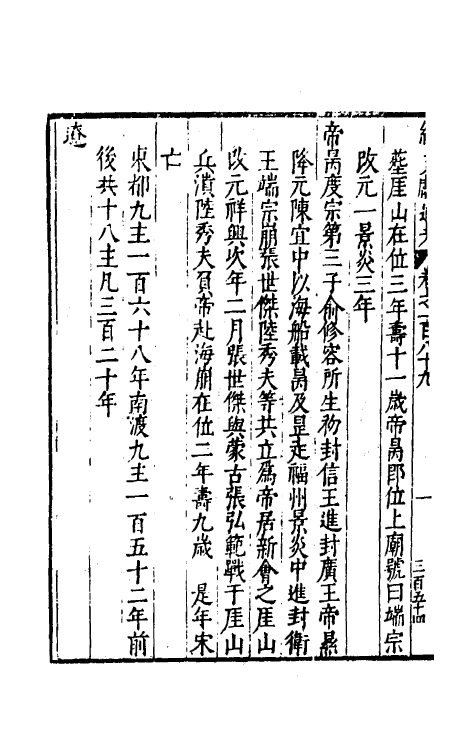 續文獻通考 卷之一百八十九 一 三百五十四
塟厓山在位三年壽十一歲帝昺即位上廟號曰端宗
改元一景炎三年
帝昺度宗第三子俞修容所生初封信王進封廣王帝㬎
降元陳宜中以海船載昺及昰走福州景炎中進封衛
王端宗崩張世傑陸秀夫等共立爲帝居新會之厓山
改元祥興次年二月張世傑與蒙古張弘範戰于厓山
兵潰陸秀夫負帝赴海崩在位二年壽九歲 是年宋
亡
東都九主一百六十八年南渡九主一百五十二年前
後共十八主凡三百二十年
遼